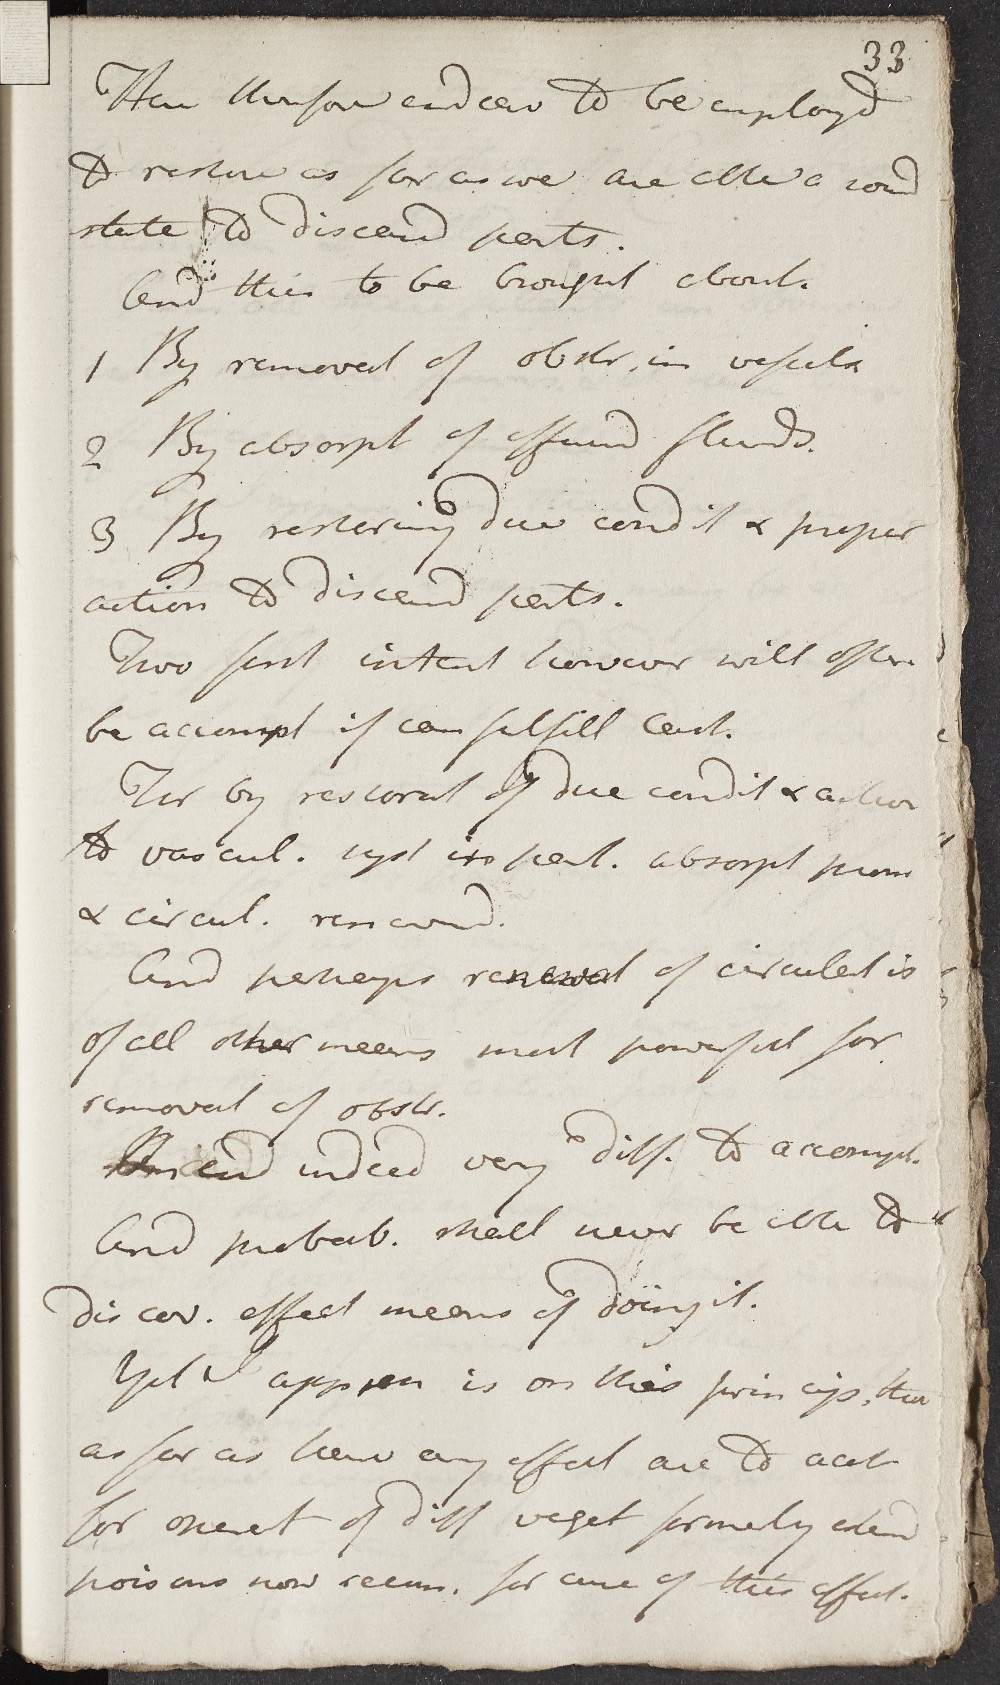 33
Here therefore endeav to be employd
to restore as far as we are able a sound
state to diseasd parts.
And this to be brought about.
1 By removal of obstr. in vessels
2 By absorpt of effusd fluids.
3 By restoring due condit & proper
action to diseasd parts.
Two first intent however will often
be accompt if can fulfill last.
For by restorat of due condit & action
to vascul. syst in part. absorpt prom
& circul. renewd.
And perhaps renewal of circulat is
of all other means most powerful for
removal of obstr.
This end indeed very diff. to accompt.
And probab. shall never be able to
discov. effect means of doing it.
Yet I appreh is on this princip. that
as far as have any effect are to act
for of diff veget formerly estemd
poisons now recom. for cure of this affect.